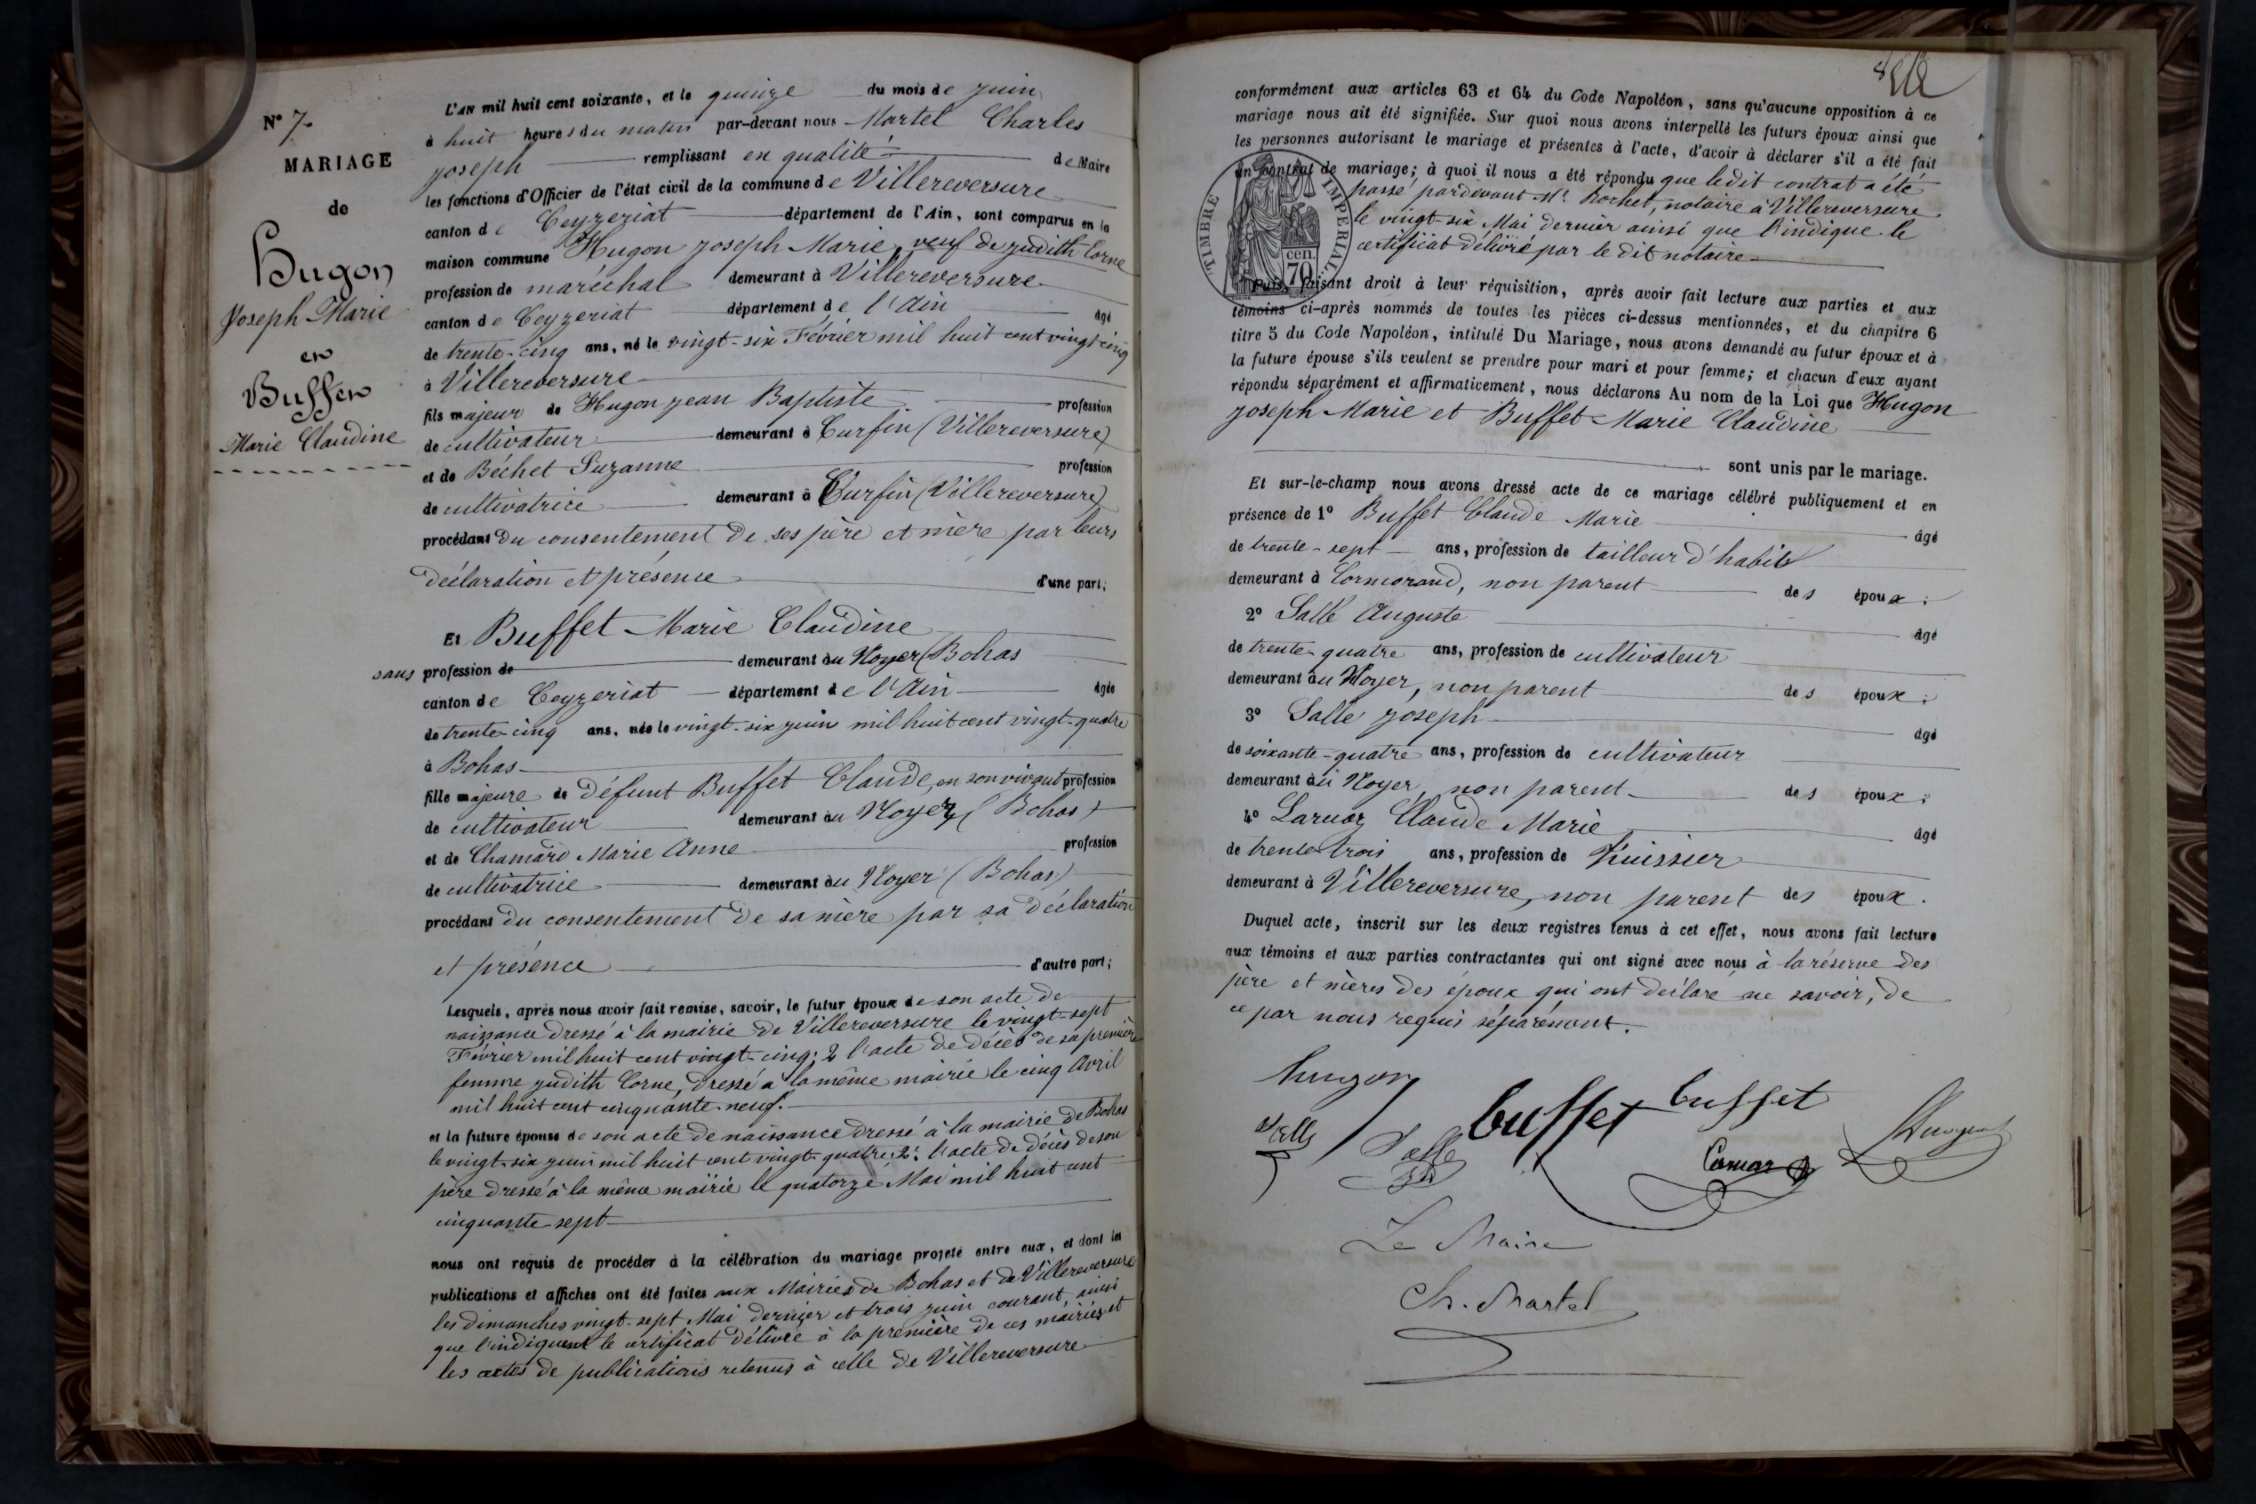 N° 7.
MARIAGE
de
Hugon
Joseph Marie
et
Buffet
Marie Claudine
L'an mil huit cent soixante, et le quinze du mois de juin
à huit heures du matin par-devant nous Martel Charles
joseph remplissant en qualité de Maire
les fonctions d'Officier de l'état civil de la commune de Villereversure
canton de Ceyzeriat département de l'Ain, sont comparus en la
maison commune Hugon joseph Marie, veuf de judith Corne
profession de maréchal demeurant à Villereversure
canton de Ceyzeriat département de l'Ain âgé
de trente-cinq ans, né le vingt-six Février mil huit cent vingt-cinq
à Villereversure
fils majeur de Hugon jean Baptiste profession
de cultivateur demeurant à Curfin (Villereversure)
et de Béchet Suzanne profession
de cultivatrice demeurant à Curfin (Villereversure)
procédant du consentement de ses père et mère par leurs
déclaration et présence d'une part;
Et Buffet Marie Claudine
sans profession de demeurant au Noyer (Bohas
canton de Ceyzeriat département de l'Ain âgée
de trente-cinq ans, née le vingt-six juin mil huit cent vingt-quatre
à Bohas
fille majeure de défunt Buffet Claude, en son vivant profession
de cultivateur demeurant au Noyer (Bohas)
et de Chamard Marie Anne profession
de cultivatrice demeurant au Noyer (Bohas)
procédant du consentement de sa mère par sa déclaration
et présence d'autre part;
Lesquels, après nous avoir fait remise, savoir, le futur époux de son acte de
naissance dressé à la mairie de Villereversure le vingt-sept
Février mil huit cent vingt-cinq; 2° l'acte de décès de sa première
femme judith Corne, dressé à la même mairie le cinq Avril
mil huit cent cinquante-neuf.
et la future épouse de son acte de naissance dressé à la mairie de Bohas
le vingt-six juin mil huit cent vingt-quatre; 2° l'acte de décès de son
père dressé à la même mairie le quatorze Mai mil huit cent
cinquante sept
nous ont requis de procéder à la célébration du mariage projeté entre eux, et dont les
publications et affiches ont été faites aux Mairies de Bohas et de Villereversure
les dimanches vingt-sept Mai dernier et trois juin courant, ainsi
que l'indiquent le certificat délivré à la première de ces mairies et
les actes de publications retenus à celle de Villereversure
conformément aux articles 63 et 64 du Code Napoléon, sans qu'aucune opposition à ce
mariage nous ait été signifiée. Sur quoi nous avons interpellé les futurs époux ainsi que
les personnes autorisant le mariage et présentes à l'acte, d'avoir à déclarer s'il a été fait
un contrat de mariage; à quoi il nous a été répondu que ledit contrat a été
passé pardevant Me Rochet, notaire à Villereversure
le vingt-six Mai dernier ainsi que l'indique le
certificat délivré par le dit notaire
TIMBRE IMPERIAL
70 cen.
Puis, faisant droit à leur réquisition, après avoir fait lecture aux parties et aux
témoins ci-après nommés de toutes les pièces ci-dessus mentionnées, et du chapitre 6
titre 5 du Code Napoléon, intitulé Du Mariage, nous avons demandé au futur époux et à
la future épouse s'ils veulent se prendre pour mari et pour femme; et chacun d'eux ayant
répondu séparément et affirmativement, nous déclarons Au nom de la Loi que Hugon
joseph Marie et Buffet Marie Claudine
sont unis par le mariage.
Et sur-le-champ nous avons dressé acte de ce mariage célébré publiquement et en
présence de 1° Buffet Claude Marie âgé
de trente-sept ans, profession de tailleur d'habits
demeurant à Cormorand, non parent des époux;
2° Salle Auguste âgé
de trente-quatre ans, profession de cultivateur
demeurant au Noyer, non parent des époux;
3° Salle joseph âgé
de soixante-quatre ans, profession de cultivateur
demeurant au Noyer, non parent des époux;
4° Laruaz Claude Marie âgé
de trente-trois ans, profession de huissier
demeurant à Villereversure, non parent des époux.
Duquel acte, inscrit sur les deux registres tenus à cet effet, nous avons fait lecture
aux témoins et aux parties contractantes qui ont signé avec nous à la réserve des
père et mères des époux qui ont déclaré ne savoir, de
ce par nous requis séparément.
hugon
buffet buffet
Salle
Le Maire
Ch. Martel